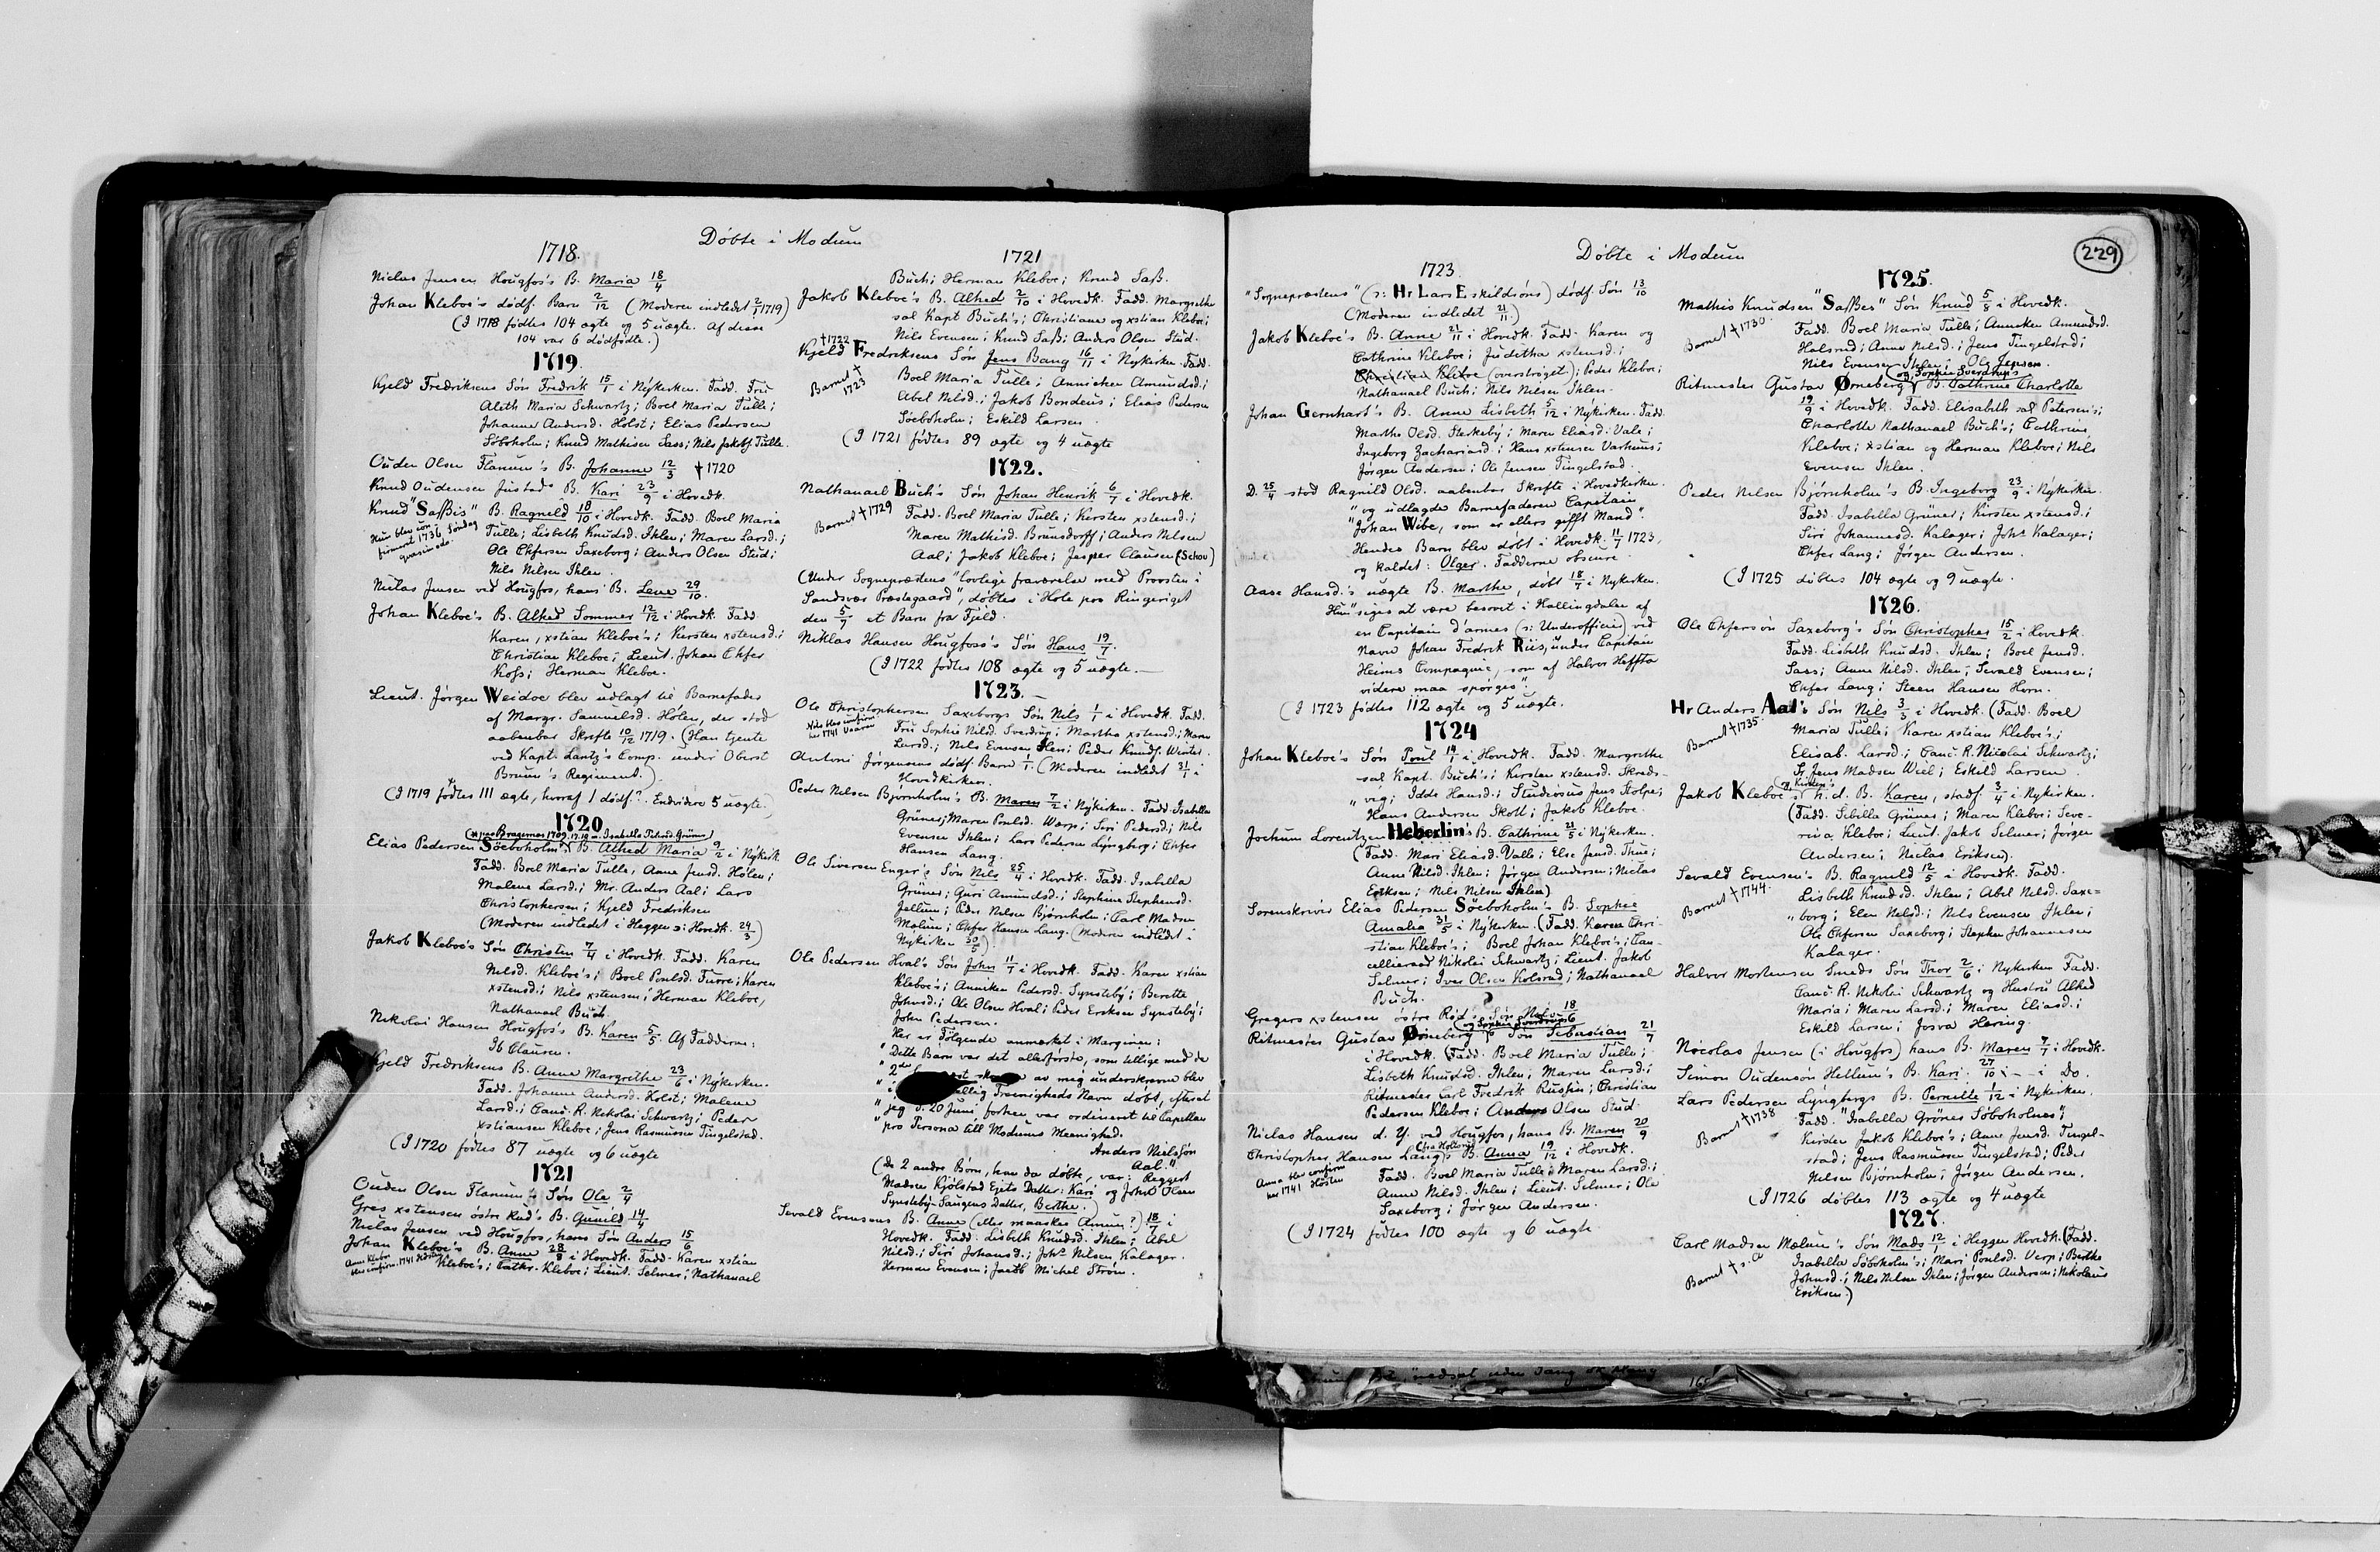 Döbte i Modum
1718.
Niclas Jensen Hougfos's B. Maria 18/4
Johan Kleboe's dödf. Barn 2/12 (Moderen indledet 2/1 1719)
(I 1718 födtes 104 ægte og 5 uægte. Af disse
104 var 6 dödfödte.)
1719.
Kjeld Fredriksens Sön Fredrik 15/1 i Nykirken. Fadd. Fru
Aleth Maria Schwartz; Boel Maria Tulle;
Johanne Andersd. Holst; Elias Pedersen
Söboholm; Knud Mathisen Sass; Nils Jakobs. Tulle.
Ouden Olsen Flanum's B. Johanne 12/3 †1720
Knud Oudensen Justads B. Kari 23/9 i Hovedk.
Knud "Saßis" B. Ragnild 18/10 i Hovedk. Fadd. Boel Maria
Hun blev con
firmeret 1736 Söndag
quasimodo.
Tulle; Lisbeth Knudsd. Ihlen; Maren Larsd.;
Ole Chfersen Saxeborg; Anders Olsen Stud;
Nils Nilsen Ihlen.
Niclas Jensen ved Hougfos, hans B. Lene 29/10.
Johan Kleboe's B. Alhed Sommer 12/12 i Hovedk. Fadd.
Karen, xstian Kleboe's; Kersten xstensd.;
Christian Kleboe; Lieut. Johan Chfer
Koss; Herman Kleboe.
Lieut. Jörgen Weidoe blev udlagt til Barnefader
af Margr. Samuelsd. Hölen, der stod
aabenbar Skrifte 10/12 1719. (Han tjente
ved Kapt. Lantz's Comp. under Oberst
Bruun's Regiment.)
(I 1719 födtes 111 ægte, hvoraf 1 dödf. Endvidere 5 uægte.)
1720
Elias Pedersen Söeboholm's B. Alhed Maria 9/2 i Nykirk.
Fadd. Boel Maria Tulle, Anne Jensd. Hölen;
Malene Larsd.; Mr. Anders Aal; Lars
Christophersen; Kjeld Fredriksen
(Moderen indledet i Heggen ɔ: Hovedk. 24/3)
Jakob Kleboe's Sön Christen 7/4 i Hovedk. Fadd. Karen
Nilsd. Kleboe's; Boel Poulsd. Furre; Karen
xstensd.; Nils xstensen; Herman Kleboe,
Nathanael Buch.
Nikolai Hansen Hougfos's B. Karen 5/5 Af Fadderne:
Ib Clausen.
Kjeld Fredriksens B. Anne Margrethe 23/6 i Nykirken.
Fadd. Johanne Andersd. Holst; Malene
Larsd.; Canc. R. Nikolai Schwartz; Peder
xstiansen Kleboe; Jens Rasmussen Tingelstad.
(I 1720 födtes 87 uægte og 6 uægte
1721
Ouden Olsen Flanum's Sön Ole 2/4
Gres xstensen östre Rud's B. Gunild 14/4
Niclas Jensen ved Hougfos, hans Sön Anders 15/6
Johan Kleboe's B. Anne 28/8 i Hovedk. Fadd. Karen xstian
Kleboe's; Cathr. Kleboe; Lieut. Selmer; Nathanael
1721
Buch; Herman Kleboe; Knud Saß.
Jakob Kleboe's B. Alhed 2/10 i Hovedk. Fadd. Margrethe
sal. Kapt. Buch's; Christiane og xstian Kleboe;
Nils Evensen; Knud Saß; Anders Olsen Stud.
†1722
Kjeld Fredriksens Sön Jens Bang 16/11 i Nykirken. Fadd.
Barnet †
1723
Boel Maria Tulle; Annichen Amundsd.;
Abel Nilsd.; Jakob Bondeus; Elias Pedersen
Söeboholm; Eskild Larsen.
(I 1721 födtes 89 ægte og 4 uægte
1722.
Nathanael Buch's Sön Johan Henrik 6/1 i Hovedk.
Barnet †1729
Fadd. Boel Maria Tulle; Kersten xstensd.;
Maren Mathisd. Brunsdorff; Anders Nilsen
Aal; Jakob Kleboe; Jesper Clausen (Schou)
(Under Sognepræstens "lovlige fraværelse med Provsten i
Sandsvær Præstegaard", döbtes i Hole pro Ringeriget
den 5/7 et Barn fra Fjeld.
Niklas Hansen Hougfoss's Sön Hans 19/7.
(I 1722 födtes 108 ægte og 5 uægte.
1723.
Ole Christophersen Saxeborgs Sön Nils 1/1 i Hovedk. Fadd.
Fru Sophie Nilsd. Sverdrup; Martha xstensd.; Maren
Larsd.; Nils Evensen Ihlen; Peder Knuds. Winter.
Antoni Jörgensens dödf. Barn 1/1. (Moderen indledet 31/1 i
Hovedkirken.
Peder Nilsen Björnholm's B. Maren 7/2 i Nykirken. Fadd. Isabella
Grüner; Maren Poulsd. Wærp; Siri Pedersd.; Nils
Evensen Ihlen; Lars Pedersen Lyngberg; Chfer
Hansen Lang.
Ole Siversen Enger's Sön Nils 25/4 i Hovedk. Fadd. Isabella
Grüner; Guri Amundsd.; Stephine Stephensd.
Jellum; Peder Nilsen Björnholm; Carl Madsen
Mælum; Chfer Hansen Lang. (Moderen indledet i
Nykirken 30/5)
Ole Pedersen Hval's Sön John 11/7 i Hovedk. Fadd. Karen xstian
Kleboe's; Anniken Pedersd. Synsteby; Berette
Johnsd.; Ole Olsen Hval; Peder Eriksen Synsteby;
John Pedersen.
Her er Fölgende anmærket i Marginen:
"Dette Barn var det allerförste, som tillige med de
av mig underskrevne blev
Treenigheds Navn döbt, efterat
"jeg d. 20 Juni forhen var ordineret til Capellan
"pro Persona till Modums Meenighed.
Anders Nielssön
Aal."
(De 2 andre Börn, han da döbte, var: Reggert
Madsen Kjölstad Ejets Datter: Kari og John Olsen
Synsteby-Saugens Datter, Berthe.)
Sevald Evensens B. Anne (eller maaskee Amun?) 18/7 i
Hovedk. Fadd. Lisbeth Knudsd. Ihlen; Abel
Nilsd.; Siri Johansd.; Johs Nilsen Kalager.
Herman Evensen; Jacob Michel Ström.
229
Döbte i Modum
1723.
"Sognepræstens" (ɔ: Hr Lars Eskildsöns) dödf. Sön 13/10
(Moderen indledet 21/11)
Jakob Kleboe's B. Anne 21/11 i Hovedk. Fadd. Karen og
Cathrine Kleboe; Juditha xstensd.;
Christian Klebœ (overströget); Peder Kleboe;
Nathanael Buch; Nils Nilsen Ihlen.
Johan Gernhart's B. Anne Lisbeth 5/12 i Nykirken. Fadd.
Marthe Olsd. Sterkeby; Maren Eliasd. Vale;
Ingeborg Zachariasd.; Hans xstensen Varhuus;
Jörgen Andersen; Ole Jensen Tingelstad.
D. 25/4 stod Ragnild Olsd. aabenbar Skrifte i Hovedkirken.
"og udlagde Barnefaderen Capitain
"Johan Wibe, som er ellers gifft Mand".
Hendes Barn blev döbt i Hovedk. 11/7 1723,
og kaldet: Olger. Fadderne obscure.
Aase Hansd.'s uægte B. Marthe, döbt 18/7 i Nykirken.
Hun "siges at være besovet i Hallingdalen af
en Capitain d'armes (ɔ: Underofficier) ved
Navn Johan Fredrik Riis, under Capitain
Heims Compagnie, som af Halvor Heffta
videre maa spörges".
(I 1723 födtes 112 ægte og 5 uægte.
1724
Johan Kleboe's Sön Poul 14/1 i Hovedk. Fadd. Margrethe
sal. Kapt. Buch's; Kirsten xstensd. Skreds-
"vig; Idde Hansd.; Studiosus Jens Stolpe;
Hans Andersen Skott; Jakob Kleboe.
Jochum Lorentzen Heberlin's B. Cathrine 21/5 i Nykirken.
(Fadd. Mari Eliasd. Valle; Else Jensd. Thue;
Anne Nilsd. Ihlen; Jörgen Andersen; Niclas
Eriksen; Nils Nilsen Ihlen)
Sorenskriver Elias Pedersen Söeboholm's B. Sophie
Amalia 31/5 i Nykirken. (Fadd. Karen Chri-
stian Kleboe's; Boel Johan Kleboe's; Can-
cellieraad Nikolai Schwartz; Lieut. Jakob
Selmer; Iver Olsen Kolsrud; Nathanael
Buch.
Gregers xstensen östre Rud's Sön Niels 18/6
(og Sophie Sverdrups
Ritmester Gustav Örneberg's Sön Sebastian 21/7
i Hovedk. (Fadd. Boel Maria Tulle;
Lisbeth Knudsd. Ihlen; Maren Larsd.;
Ritmester Carl Fredrik Rusjus; Christian
Pedersen Kleboe; Anders Olsen Stud.
Niclas Hansen d. Y. ved Hougfos, hans B. Maren 20/9
Christopher Hansen Lang's B. Anna 19/12 i Hovedk.
Anna blev confirm
her 1741 Hösten
Fadd. Boel Maria Tulle; Maren Larsd.;
Anne Nilsd. Ihlen; Lieut. Selmer; Ole
Saxeborg; Jörgen Andersen.
(I 1724 födtes 100 ægte og 6 uægte
1725.
Mathis Knudsen "Saßes" Sön Knud 5/8 i Hovedk.
Barnet †1730.
Fadd. Boel Maria Tulle; Anneken Amundsd.
Halsrud; Anne Nilsd.; Jens Tingelstad;
Nils Evensen Ihlen; Ole Jepsen.
(og Sophie Sverdrup's
Ritmester Gustav Örneberg's B. Cathrine Charlotte
19/9 i Hovedk. Fadd. Elisabeth sal. Petersen's;
Charlotte Nathanael Buch's; Cathrine
Kleboe; xstian og Herman Kleboe; Nils
Evensen Ihlen.
Peder Nilsen Björnholm's B. Ingeborg 23/9 i Nykirken.
Fadd. Isabella Grüner; Kirsten xstensd.;
Siri Johannesd. Kalager; Johs Kalager;
Chfer Lang; Jörgen Andersen.
(I 1725 döbtes 104 ægte og 9 uægte.
1726.
Ole Chfersön Saxeborg's Sön Christopher 15/2 i Hovedk.
Fadd. Lisbeth Knudsd. Ihlen; Boel Jensd.
Sass; Anne Nilsd. Ihlen; Sevald Evensen;
Chfer Lang; Steen Hansen Horn.
Hr Anders Aal's Sön Nils 3/3 i Hovedk. (Fadd. Boel
Barnet †1735.
Maria Tulle; Karen xstian Kleboe's;
Elisab. Larsd.; Canc. R. Nicolai Schwartz;
Sr. Jens Madsen Wiel; Eskild Larsen.
Jakob Kleboe's h. d. B. Karen, stadf. 3/4 i Nykirken.
(Fadd. Sibilla Grüner; Maren Kleboe; Seve-
rina Kleboe; Lieut. Jakob Selmer; Jörgen
Andersen; Niclas Eriksen).
Sevald Evensen's B. Ragnild 12/5 i Hovedk. Fadd.
Barnet †1744.
Lisbeth Knudsd. Ihlen; Abel Nilsd. Saxe=
"borg; Elen Nilsd.; Nils Evensen Ihlen;
Ole Chfersen Saxeborg; Stephen Johannesen
Kalager.
Halvor Mortensen Smeds Sön Thor 2/6 i Nykirken Fadd.
Canc. R. Nikolai Schwartz og Hustru Alhed
Maria; Maren Larsd.; Maren Eliasd.;
Eskild Larsen; Josva Hæring.
Nocolas Jensen (i Hougfos) hans B. Maren 7/7 i Hovedk.
Simon Oudensön Hellum's B. Kari 27/10 i — i Do.
Lars Pedersen Lyngbergs B. Pernille 1/12 i Nykirken.
Barnet †1738
Fadd. "Isabella Grönes Söboholmes";
Kirsten Jakob Kleboe's; Anne Jensd. Tingel-
stad; Jens Rasmussen Tingelstad; Peder
Nilsen Björnholm; Jörgen Andersen.
(I 1726 döbtes 113 ægte og 4 uægte
1727.
Carl Madsen Mælum's Sön Mads 12/1 i Heggen Hovedk. (Fadd.
Barnet † s. A
Isabella Söboholm's; Mari Poulsd. Verp; Berthe
Johnsd.; Nils Nilsen Ihlen; Jörgen Andersen; Nikolaus
Eriksen.)